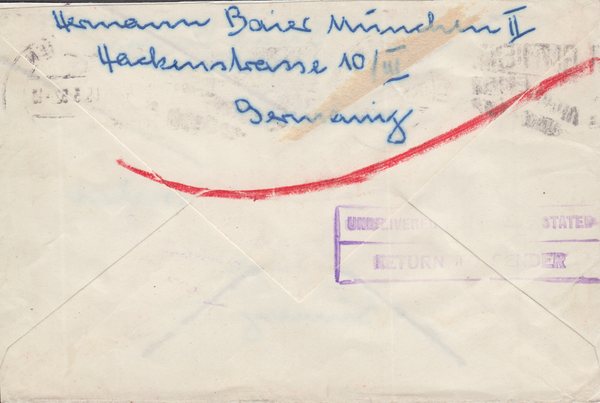 Hermann Baier München II
Hackenstrasse 10/III
Germany
STATED
RETURN SENDER